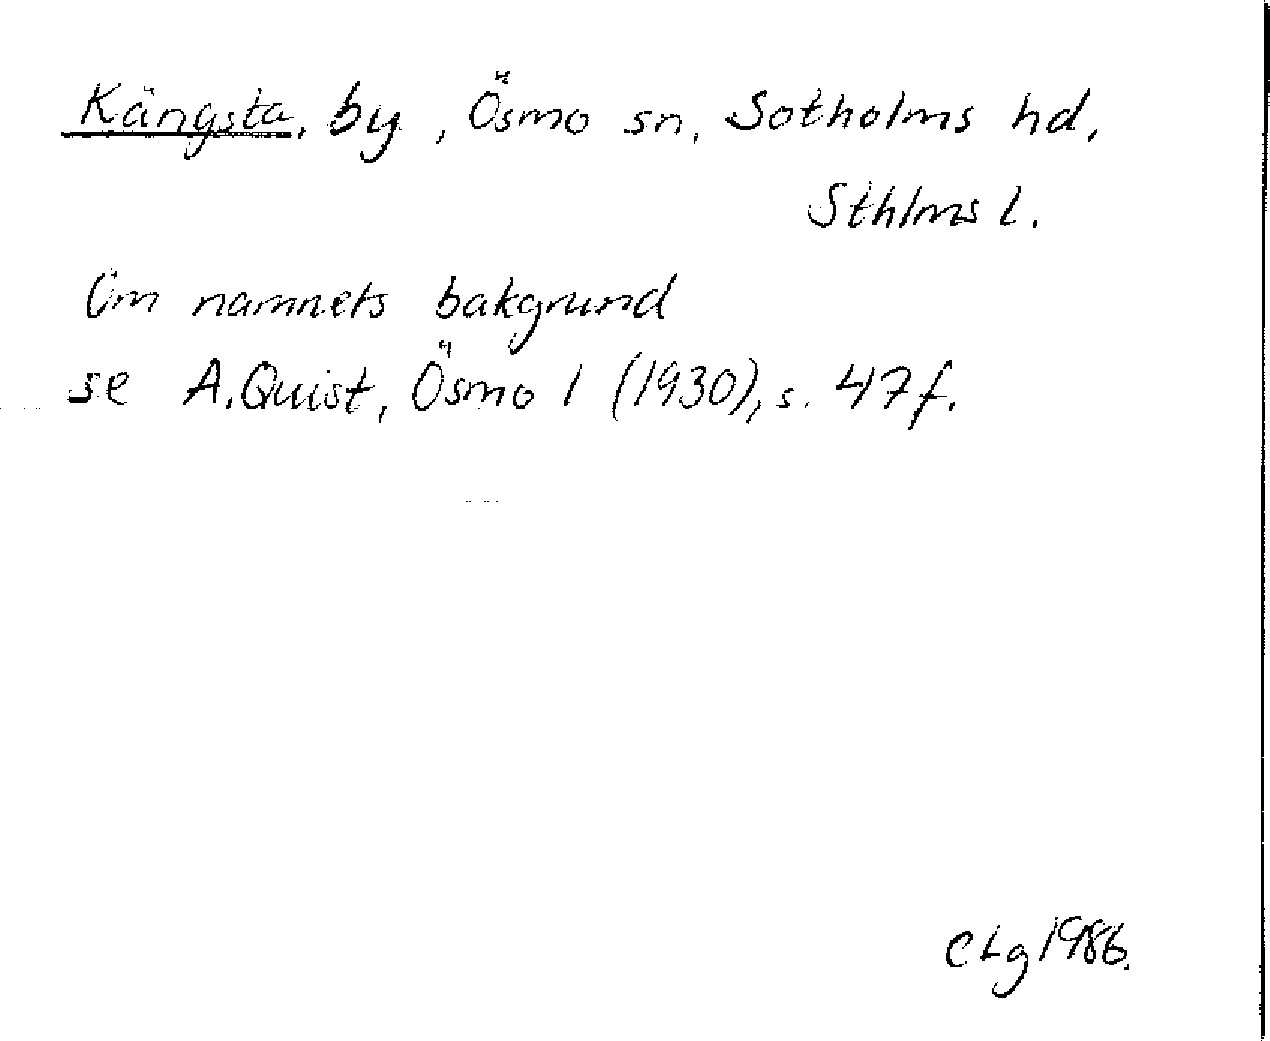 Kängsta, by, Ösmo sn, Sotholms hd,
Sthlms l.
Om namnets bakgrund
se A. Quist, Ösmo 1 (1930), s. 47f.
CLg 1986.